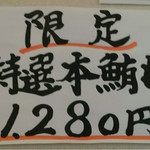 限定
特選本鮪
1,280円